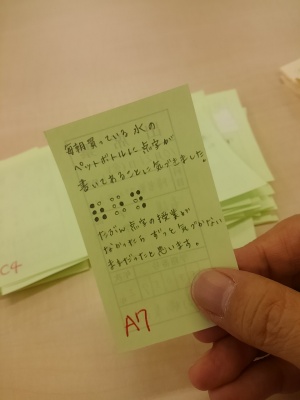 毎朝買っている 水の
ペットボトルに 点字が
書いてあることに気づきました。
たぶん 点字の授業が
なかったら ずっと気づかない
ままだったと思います。
A7
C4